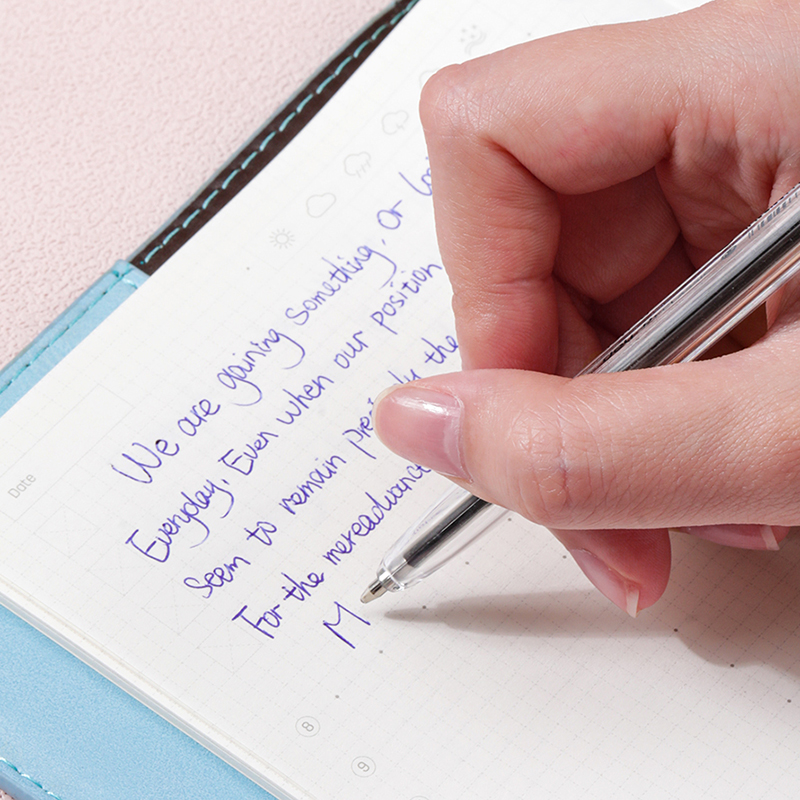 Date
We are gaining something, Or
Everyday, Even when our position
Seem to remain the
For the mereadvance
M
8
9